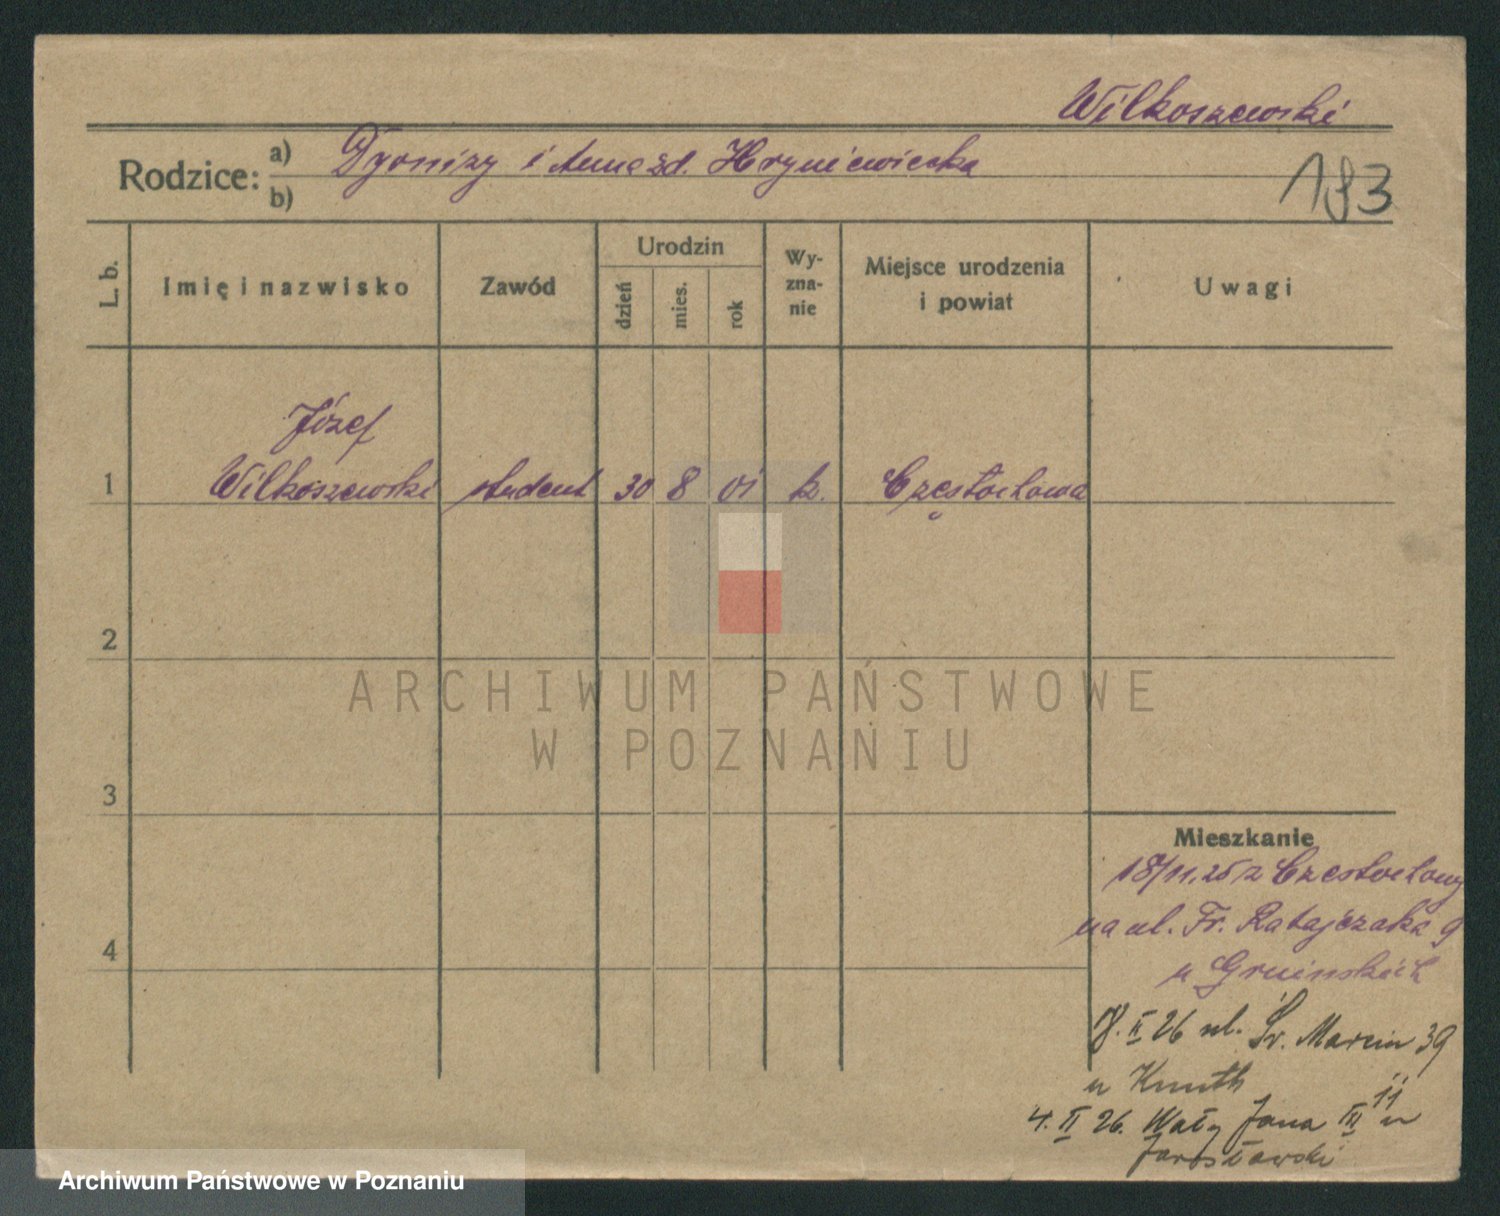 Wilkoszewski
Rodzice: a) Dyonizy i Anna zd. Hryniewiecka
b)
193
L. b.
Imię i nazwisko
Zawód
Urodzin
dzień
mies.
rok
Wy-
zna-
nie
Miejsce urodzenia
i powiat
Uwagi
Józef
1 Wilkoszewski student 30 8 01 k. Częstochowa
2
3
4
Mieszkanie
18/11.25 z Częstochowy
na ul. Fr. Ratajczaka 9
u Gruińskich
II 26 ul. Św. Marcin 39
u Knuth
4. II 26. Wały Jana III 11 u
Jarosławski
ARCHIWUM PAŃSTWOWE
W POZNANIU
Archiwum Państwowe w Poznaniu